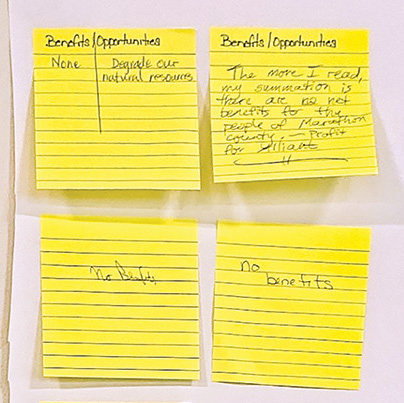 Benefits/Opportunities
None Degrade our
natural resources
Benefits/Opportunities
The more I read,
my summation is
there are no net
benefits for the
people of Marathon
county. — Profit
for
No Benefits
no
benefits